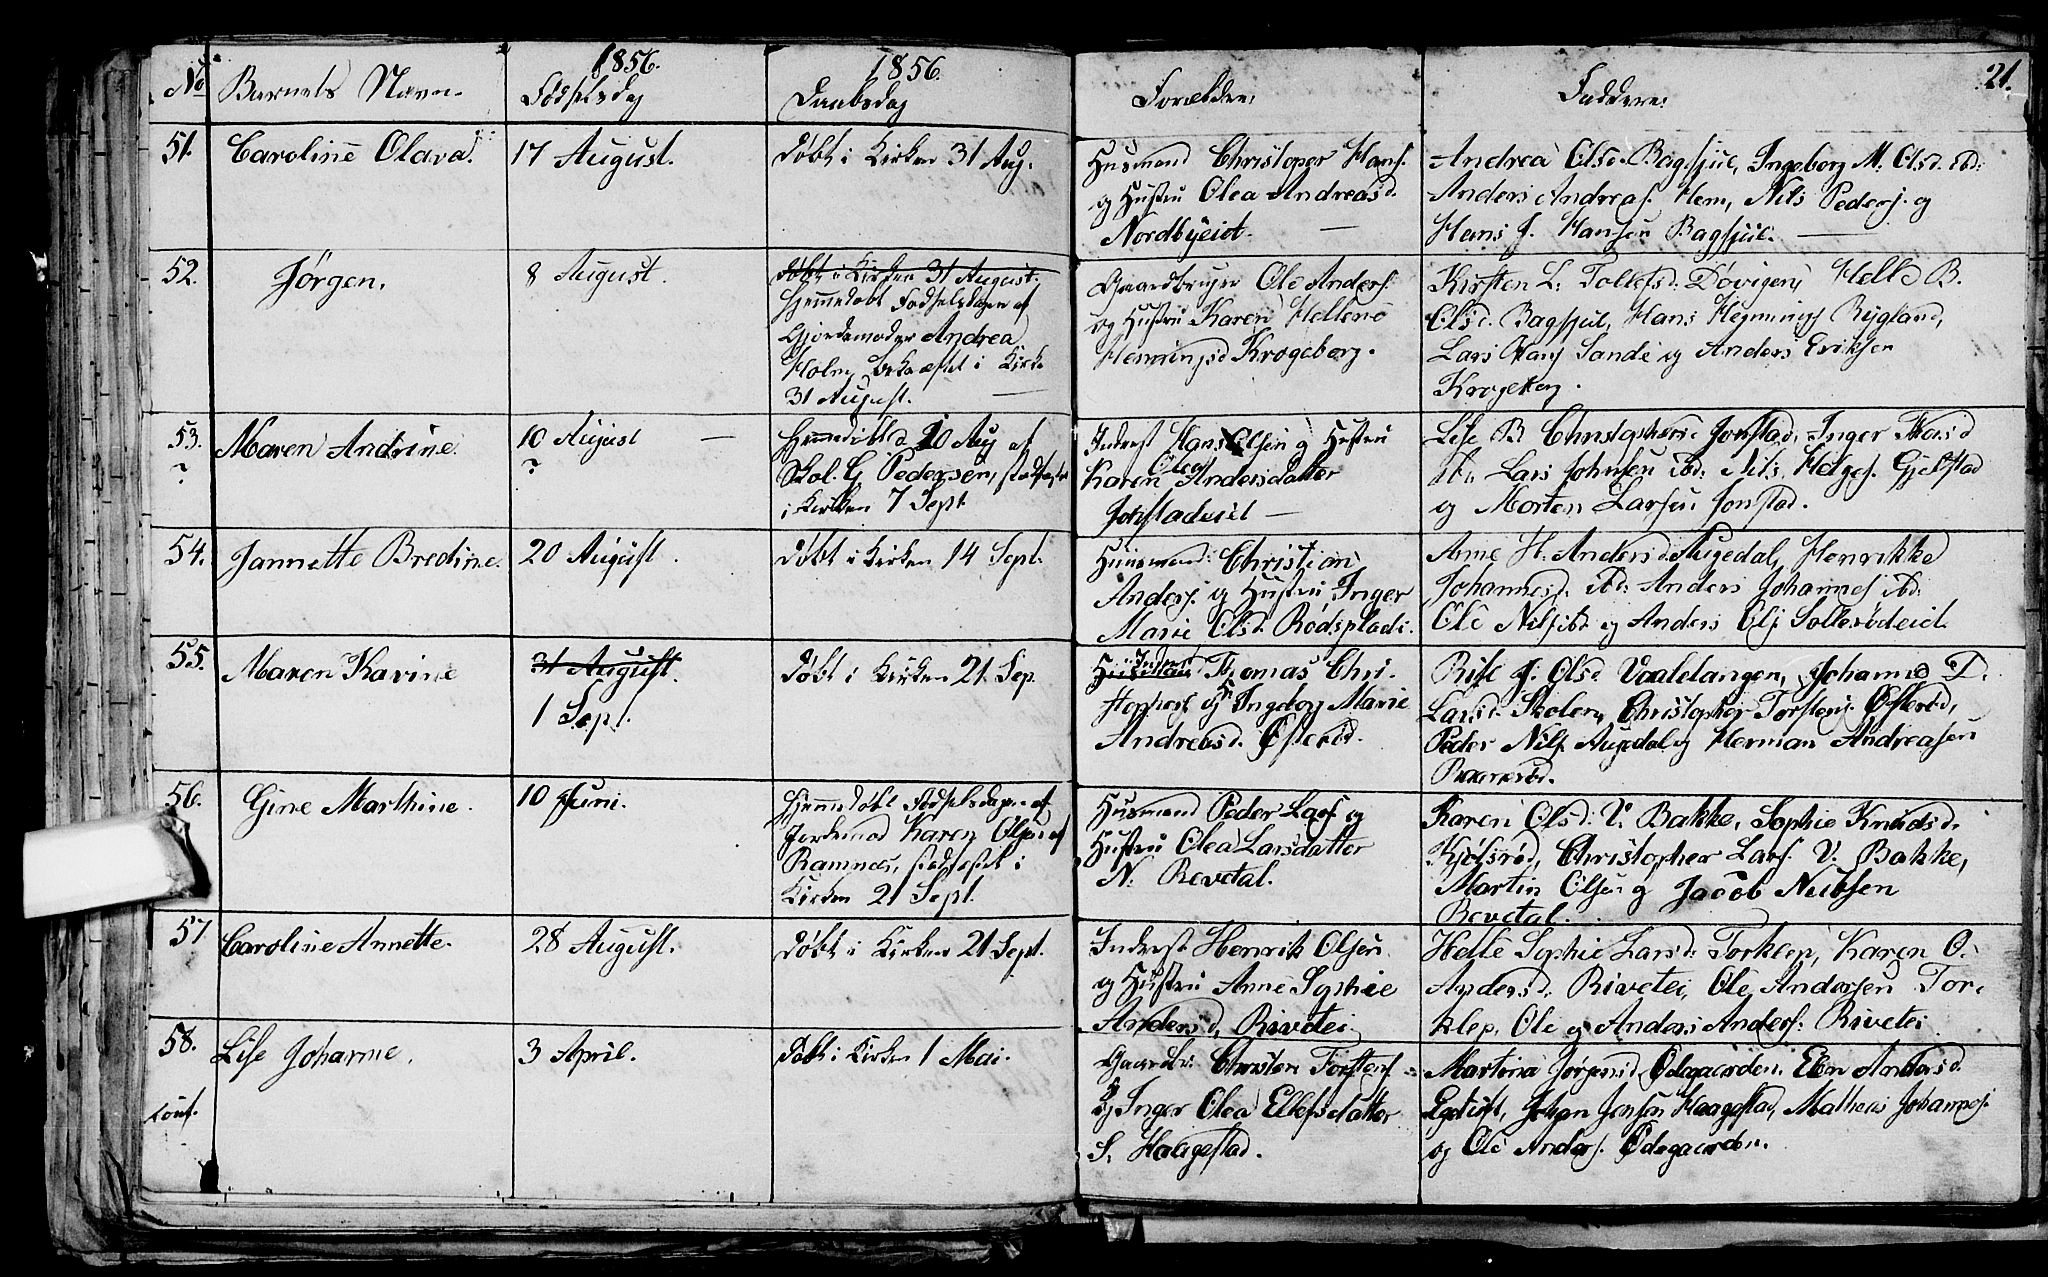 21.
No Barnets Navn. 1856. Fødselsdag 1856. Daabsdag Forældre: Faddere:
51. Caroline Olava. 17 August. Døbt i Kirken 31 Aug.
Husmand Christopher Hans.
og Hustru Olea Andreasd.
Nordbyeiet. —
Andrea Olsd. Bagsjul, Ingeborg M. Olsd. ibd:
Anders Andreas. Hem, Nils Peders. og
Hans J. Hansen Bagsjul. —
52. Jørgen. 8 August. Døbt i Kirken 31 August.
Hjemmedøbt Fødselsdagen af
Gjordemoder Andrea
Holm, bekræftet i Kirk
31 August. —
Gaardbruger Ole Anders.
og Hustru Karen Hellene
Henningsd Krogeborg.
Kirsten L. Tollefsd. Døvigen, Helle B.
Olsd. Bagsjul, Hans Hennings Rygland,
Lars Hans Sande og Anders Eriksen
Krogeborg.
53. ? Maren Andrine. 10 August — ?
Hjemmedøbt d 10 Aug af
Skol. G. Pedersen, stadfæstet
i Kirken 7 Sept
Inderst Hans Olsen og Hustru
Karen Olea Andersdatter
Jonstadeiet —
Lise B Christophersd Jonstad, Inger
ib, Lars Johnsen ibd: Nils Helges. Gjelstad
og Morten Larsen Jonstad.
54. Jannette Bredine. 20 August. Døbt i Kirken 14 Sept.
Huusmand: Christian
Anders. og Hustru Inger
Marie Olsd. Rødsplads.
Anne H. Andersd. Augedal, Henrikke
Johannesd. ibd: Anders Johannes ibd:
Ole Nils ibd og Anders Ols Solterødeiet.
55. Maren Karine 31 August. 1 Sept. Døbt i Kirken 21 Sep.
Huusmand Inderst Thomas Chri-
stophers. og H. Ingeborg Marie
Andreasd. Østerød.
Rise J. Olsd Vaaletangen, Johanne D.
Larsd. Skolen, Christopher Torstens. Østerød,
Peder Nils Augedal og Herman Andreasen
56. Gine Marthine. 10 Juni.
Hjemmedøbt Fødselsdagen af
Jordemod Karen Olsen af
Ramnæs, stadfæstet i
Kirken 21 Sept.
Husmand Peder Lars og
Hustru Olea Larsdatter
N. Revetal.
Karen Olsd. V. Bakke, Sophie Knudsd.
Kjølsrød, Christopher Lars. V. Bakke,
Martin Olsen og Jacob Neubsen
Revetal.
57 Caroline Annette. 28 August. Døbt i Kirken 21 Sept.
Inderst Henrik Olsen
og Hustru Anne Sophie
Andersd, Rivetei
Helle Sophie Larsd. Torklep, Karen O.
Andersd. Rivetei, Ole Andersen Tor-
klep, Ole og Anders Anders. Rivetei
58. Lise Johanne. 3 April. Døbt i Kirken 1 Mai.
conf.
Gaardbr: Christen Torstens
og Inger Olea Ellefsdatter
S. Haugestad.
Martina Jørgensd Ødegaarden, Elen Andersd.
Egetuft, Johan Jensen Haagestad, Mathias Johannes.
og Ole Anders. Ødegaarden.